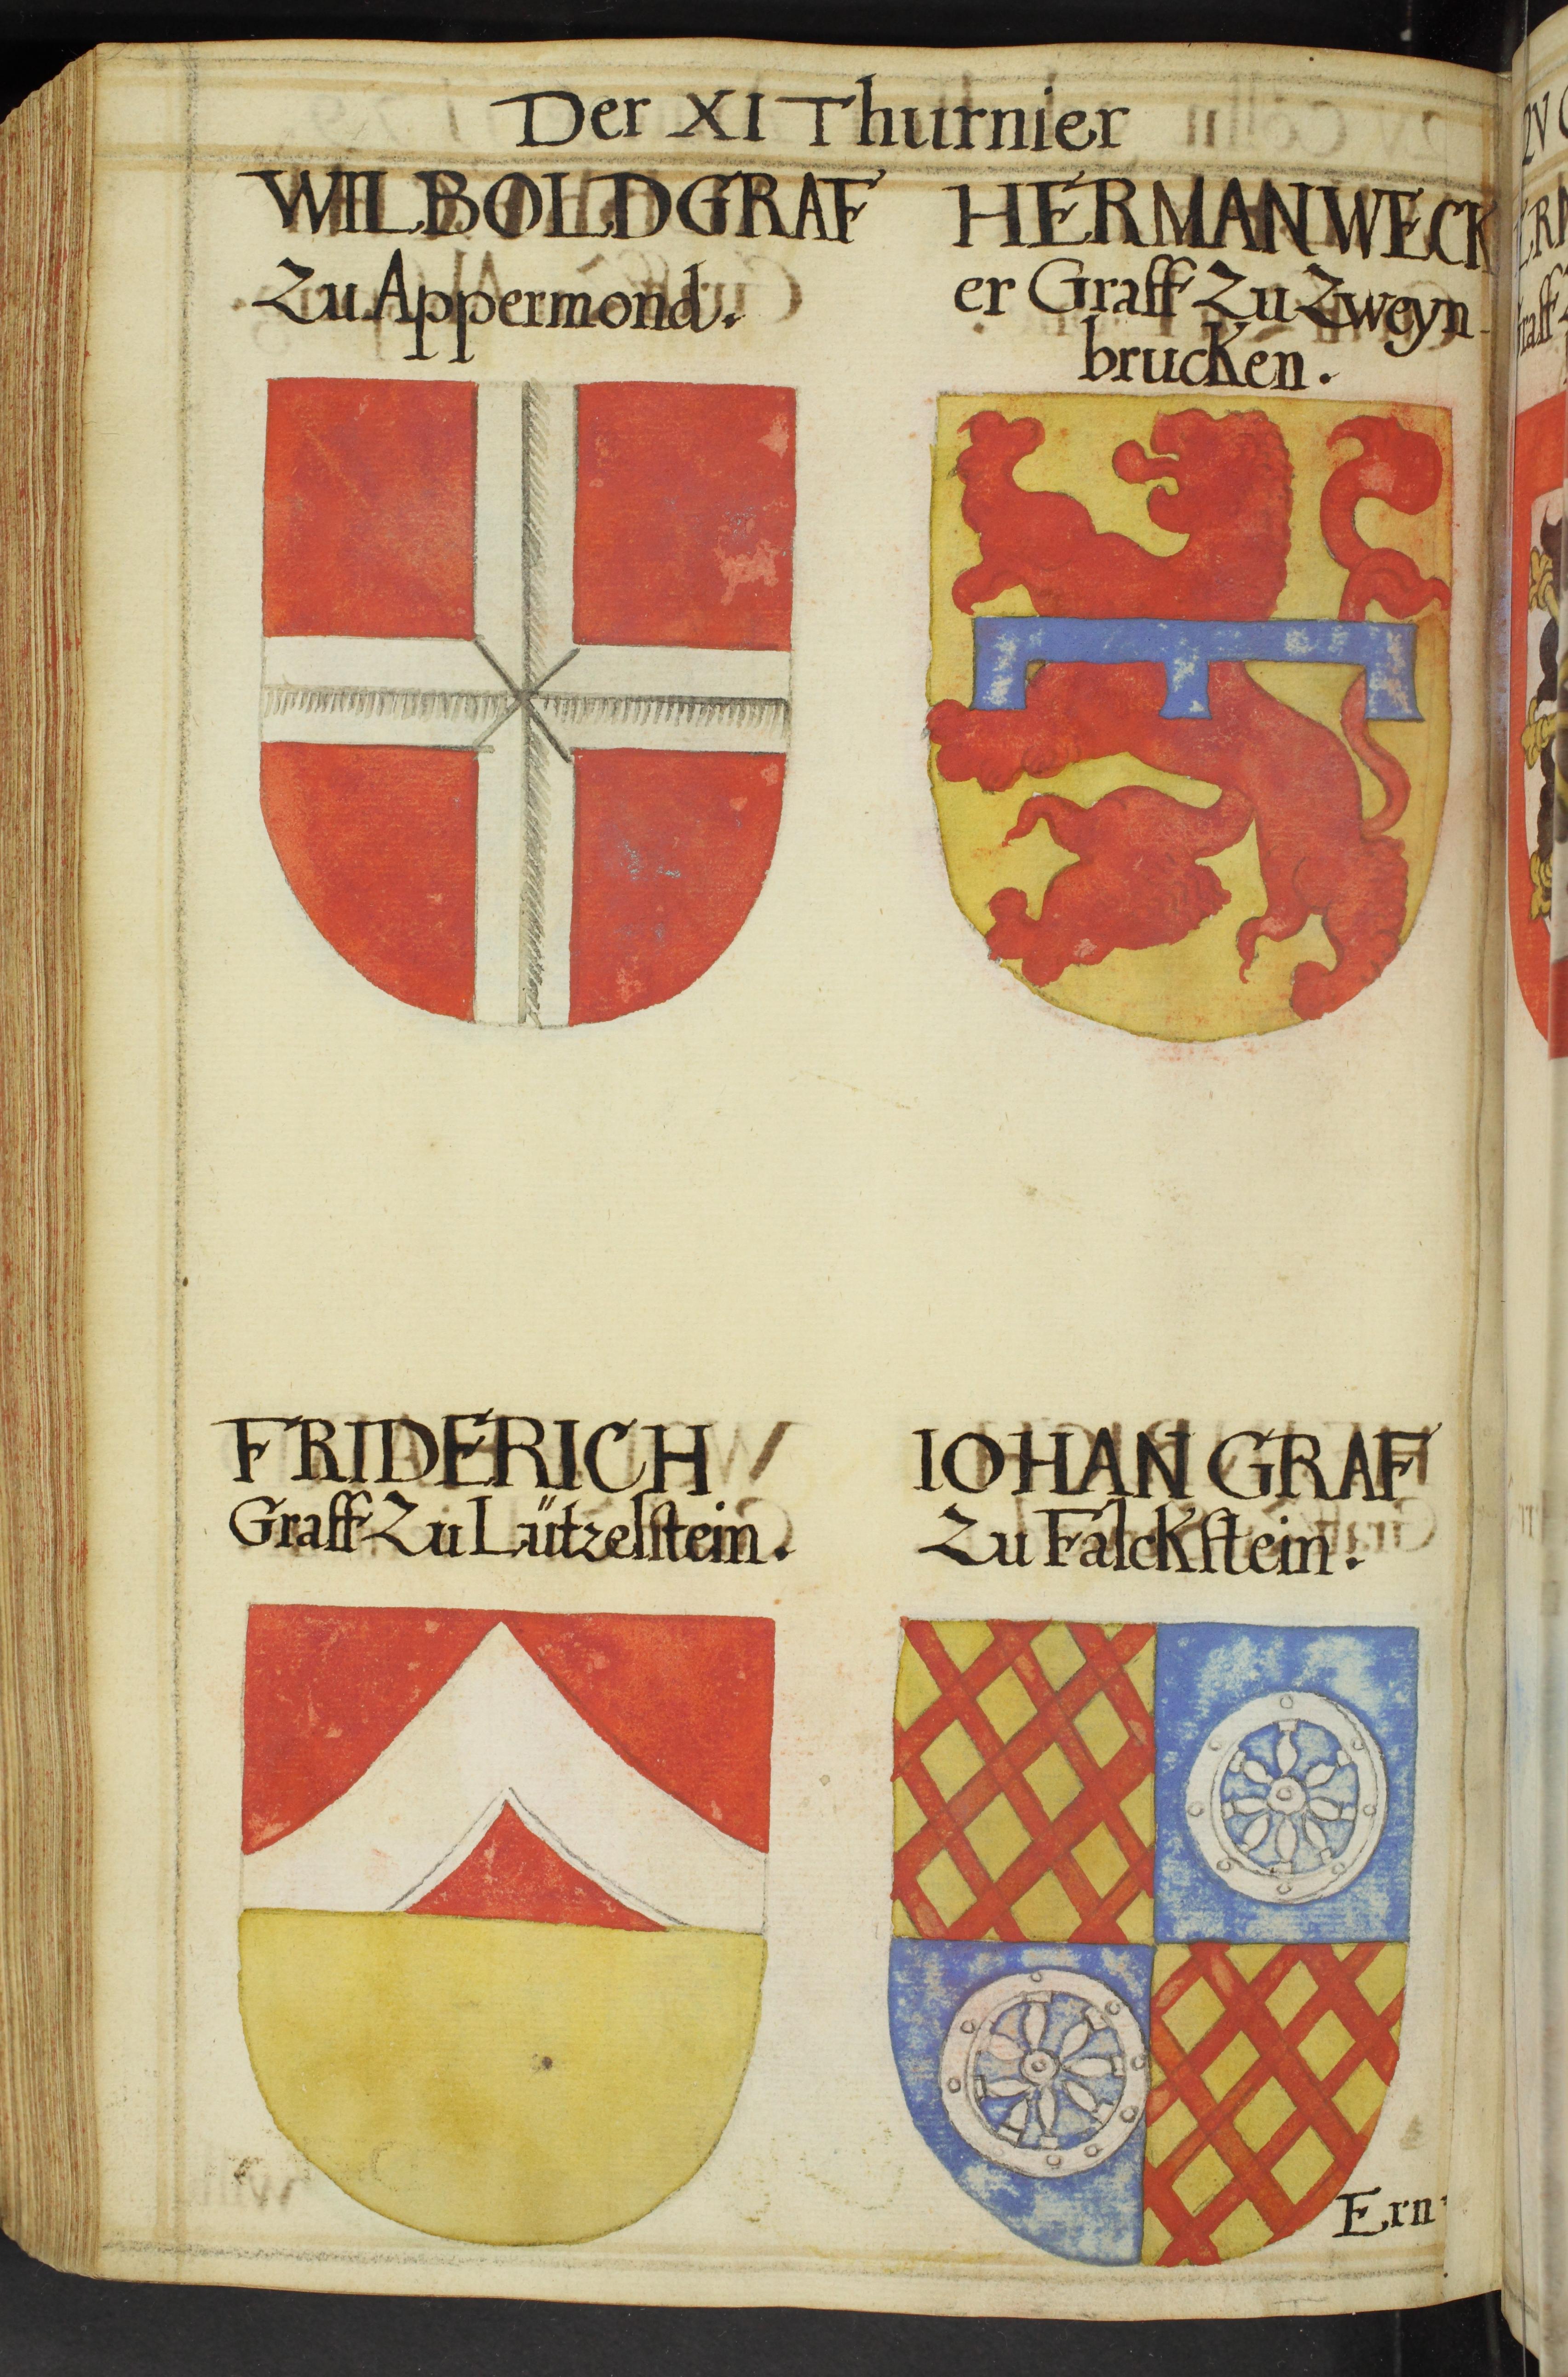 Der XI Thurnier
WILBOLD GRAF
Zu Appermond.
HERMAN WECK
er Graff Zu Zweyn
brucken.
FRIDERICH
Graff Zu Lützelstein.
IOHAN GRAF
Zu Falckstein.
Ern